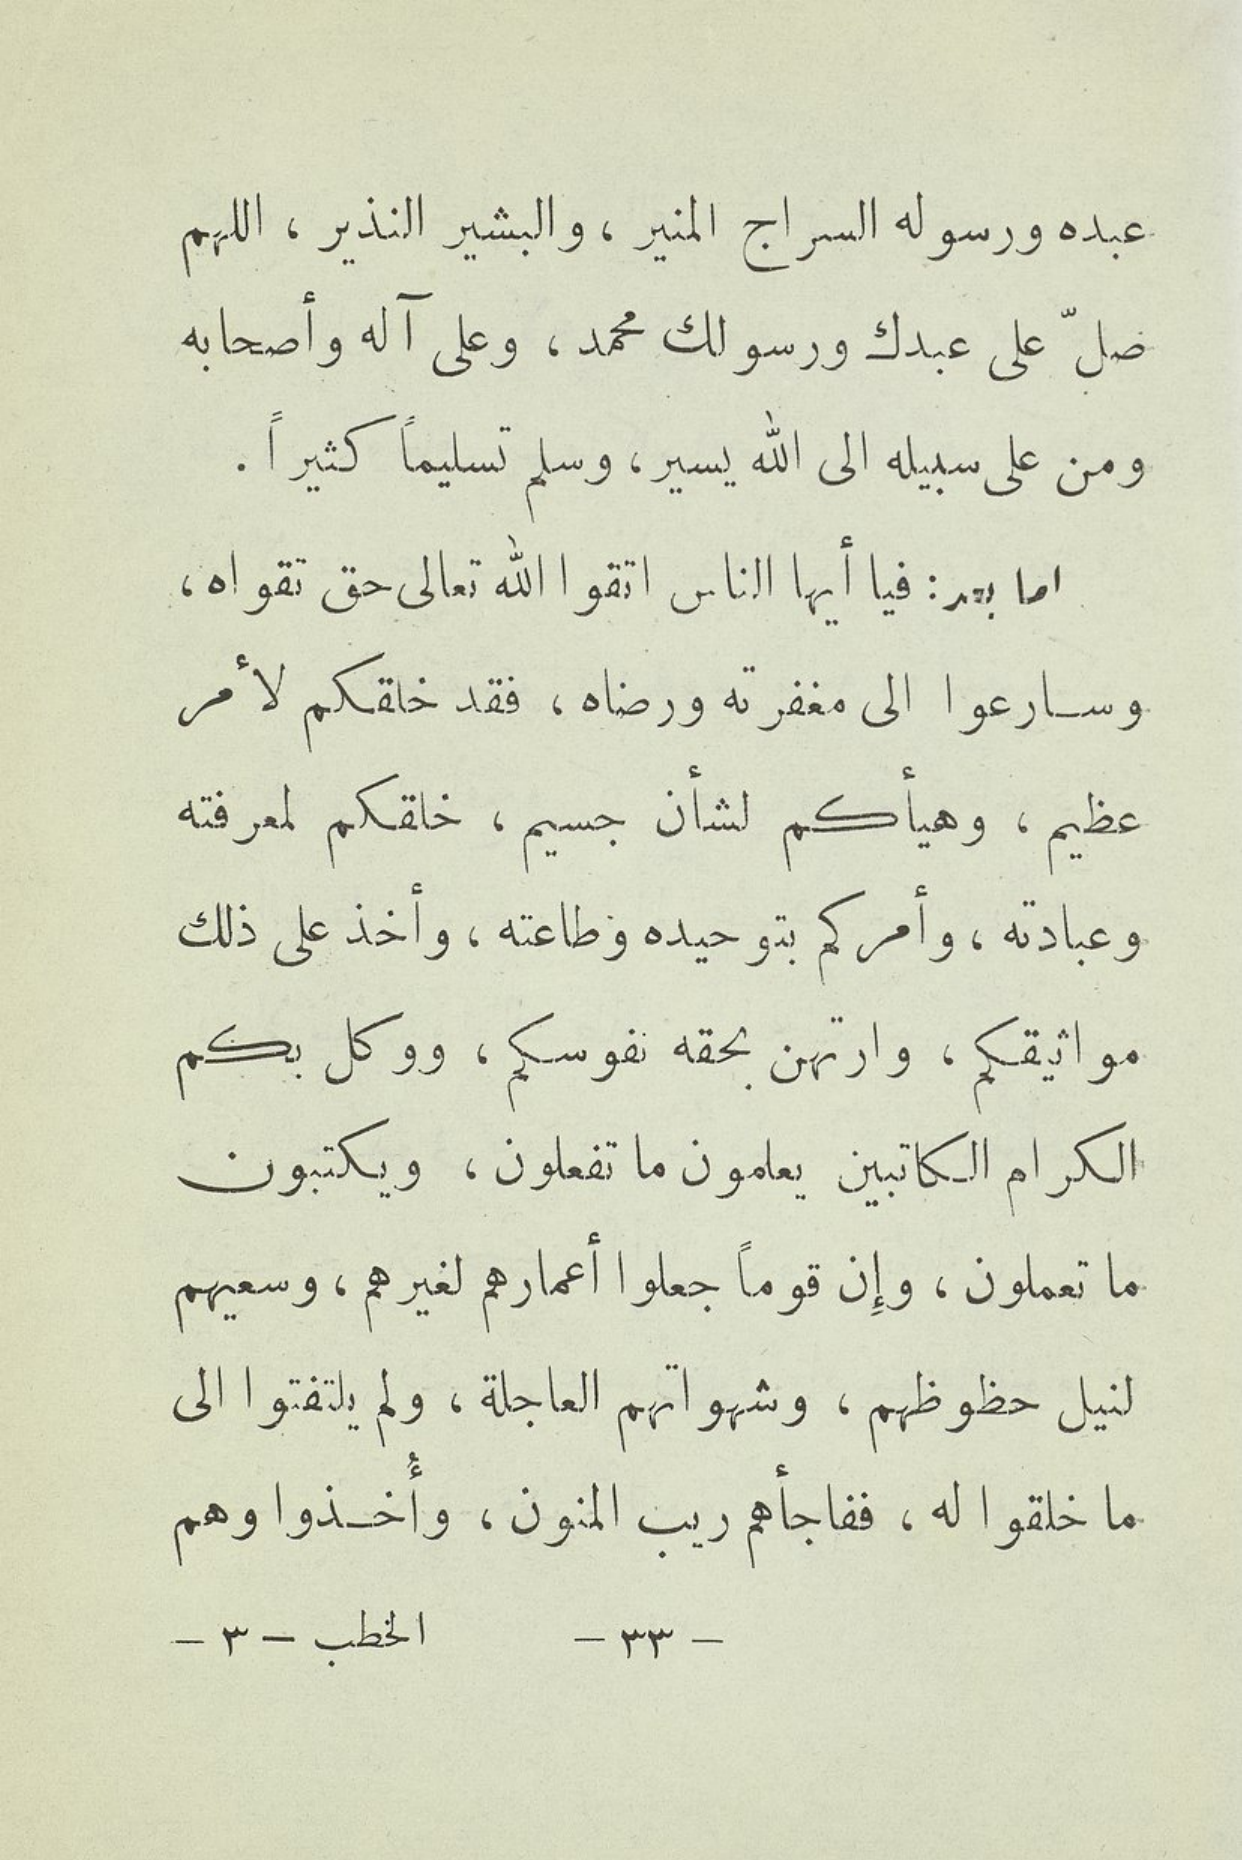 عبده ورسوله السراج المنير ، والبشير النذير ، اللهم
صلّ على عبدك ورسولك محمد ، وعلى آله وأصحابه
ومن على سبيله الى الله يسير ، وسلم تسليماً كثيراً .
اما بعد : فيا أيها الناس اتقوا الله تعالى حق تقواه ،
وسارعوا الى مغفرته ورضاه ، فقد خلقكم لأمر
عظيم ، وهيأكم لشأن جسيم ، خلقكم لمعرفته
وعبادته ، وأمركم بتوحيده وطاعته ، وأخذ على ذلك
مواثيقكم ، وارتهن بحقه نفوسكم ، ووكل بكم
الكرام الكاتبين يعلمون ما تفعلون ، ويكتبون
ما تعملون ، وإِن قوماً جعلوا أعمارهم لغيرهم ، وسعيهم
لنيل حظوظهم ، وشهواتهم العاجلة ، ولم يلتفتوا الى
ما خلقوا له ، ففاجأهم ريب المنون ، وأُخذوا وهم
– ٣٣ – الخطب – ٣ –